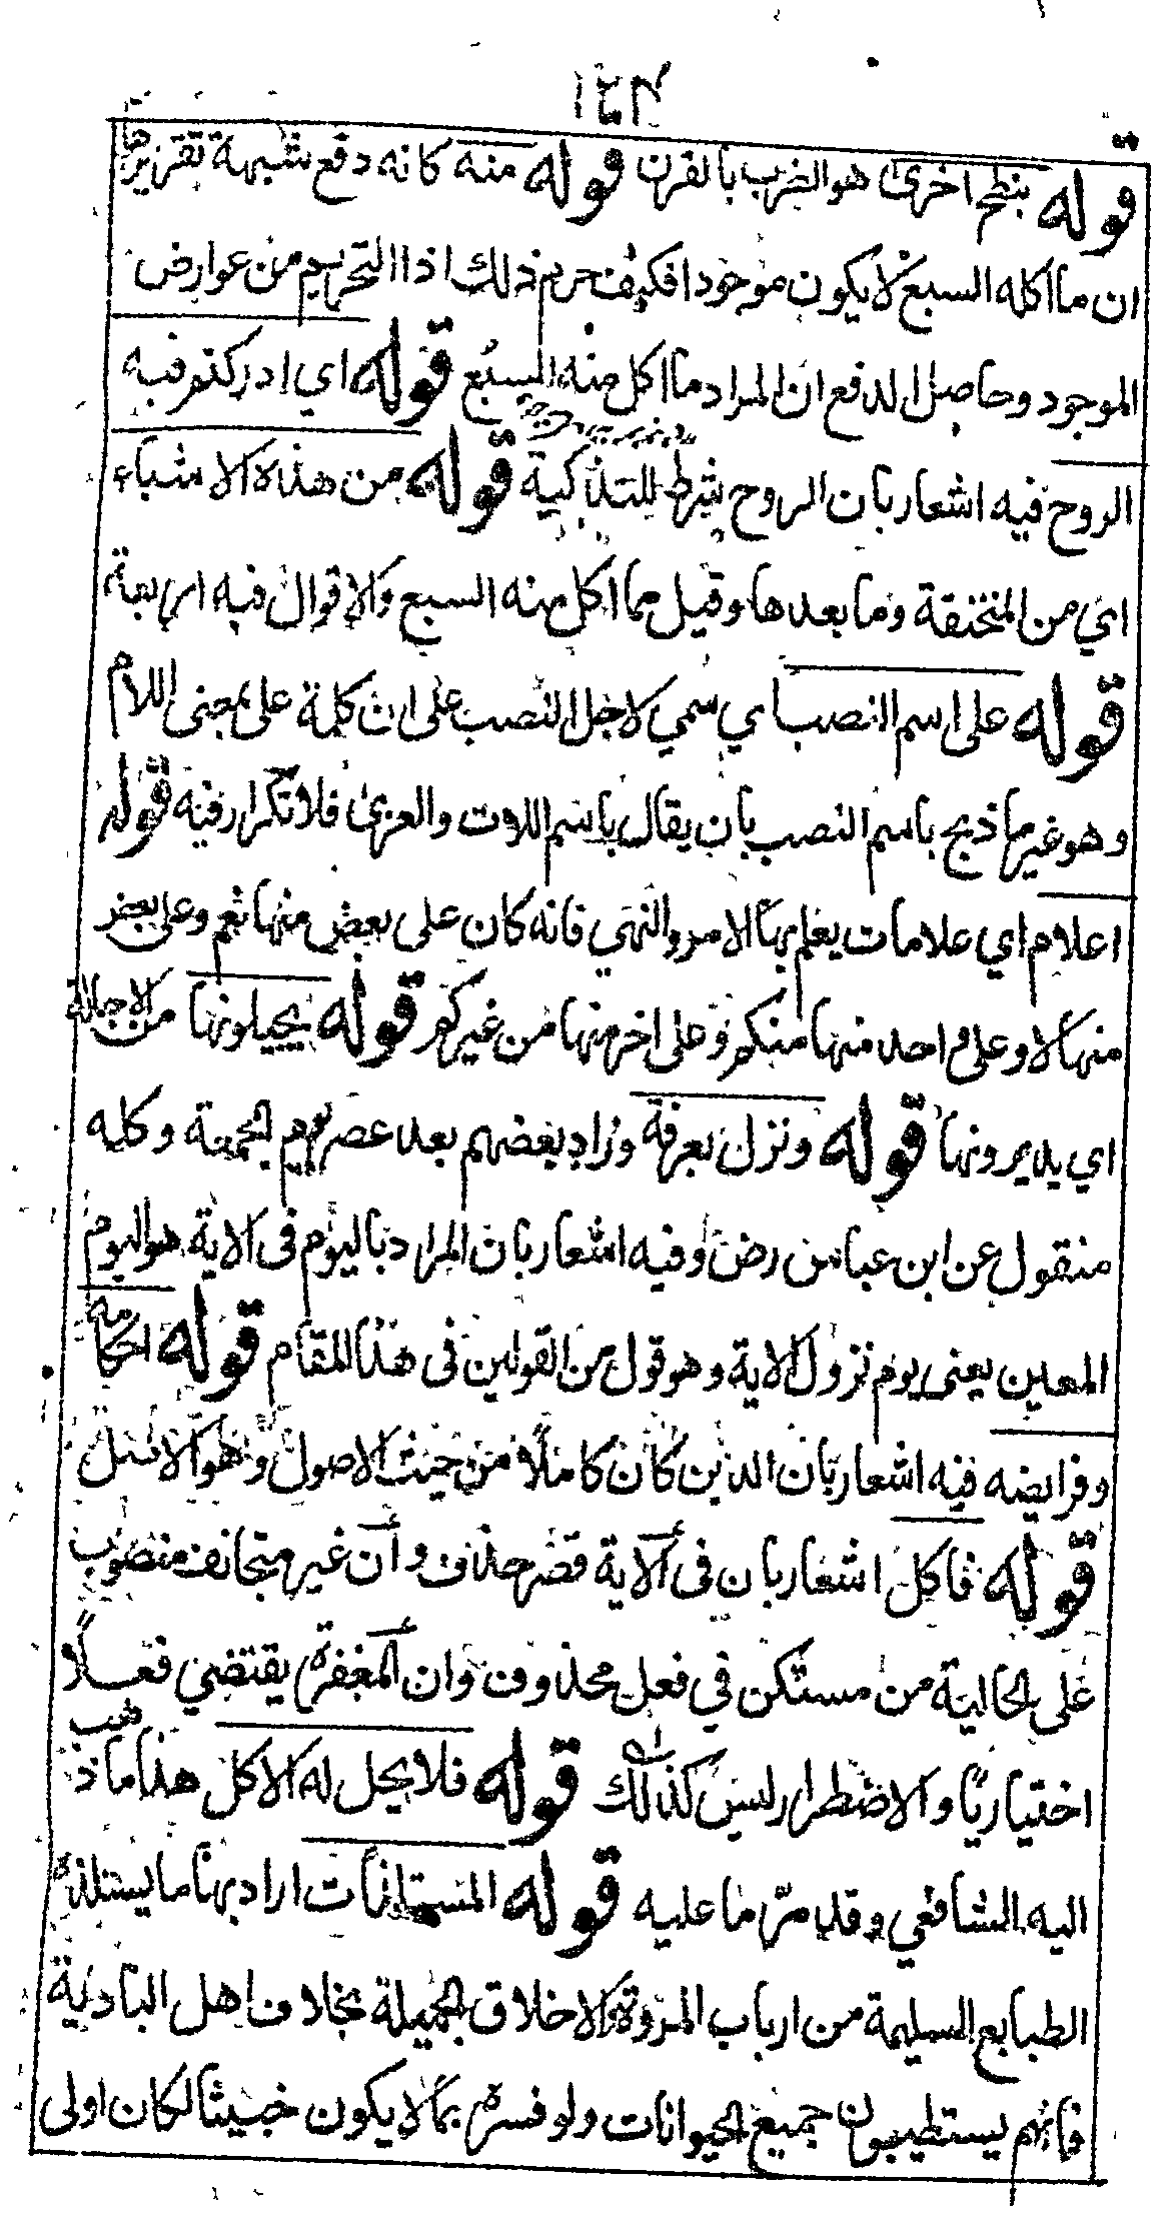 ١٢٣
قوله بنطح اخرى هو الضرب بالقرن قوله منه كانه دفع شبهة تقريرها
ان ما اكله السبع لا يكون موجودا فكيف حرم ذلك اذا التحريم من عوارض
الموجود وحاصل الدفع ان المراد ما اكل منه السبع قوله اي ادركتم فيه
الروح فيه اشعار بان الروح شرط للتذكية قوله من هذه الاشياء
اي من المنخنقة وما بعدها وقيل مما اكل منه السبع والاقوال فيه اربعة
قوله على اسم النصب اي سمي لاجل النصب على ان كلمة على بمعنى اللام
وهو غير ما ذبح باسم النصب بان يقال باسم اللات والعزى فلا تكرار فيه قوله
اعلام اي علامات يعلم بها الامر والنهي فانه كان على بعض منها نعم وعلى بعض
منها لا وعلى واحد منها منكم وعلى اخر منها من غيركم قوله يجيلونها من الاجالة
اي يديرونها قوله ونزل بعرفة وزاد بعضهم بعد عصر يوم الجمعة وكله
منقول عن ابن عباس رض وفيه اشعار بان المراد باليوم في الاية هو اليوم
المعين يعني يوم نزول الاية وهو قول من القولين في هذا المقام قوله احكامه
وفرايضه فيه اشعار بان الدين كان كاملا من حيث الاصول وهو الاشمل
قوله فاكل اشعار بان في الاية قصر حذف وان غير متجانف منصوب
على الحالية من مستكن في فعل محذوف وان المغفرة يقتضي فعلا
اختياريا والاضطرار ليس كذلك قوله فلا يحل له الاكل هذا ما ذهب
اليه الشافعي وقد مر ما عليه قوله المستلذات اراد بها ما يستلذه
الطبايع السليمة من ارباب المروة والاخلاق الجميلة بخلاف اهل البادية
فانهم يستطيبون جميع الحيوانات ولو فسره بما لا يكون خبيثا لكان اولى